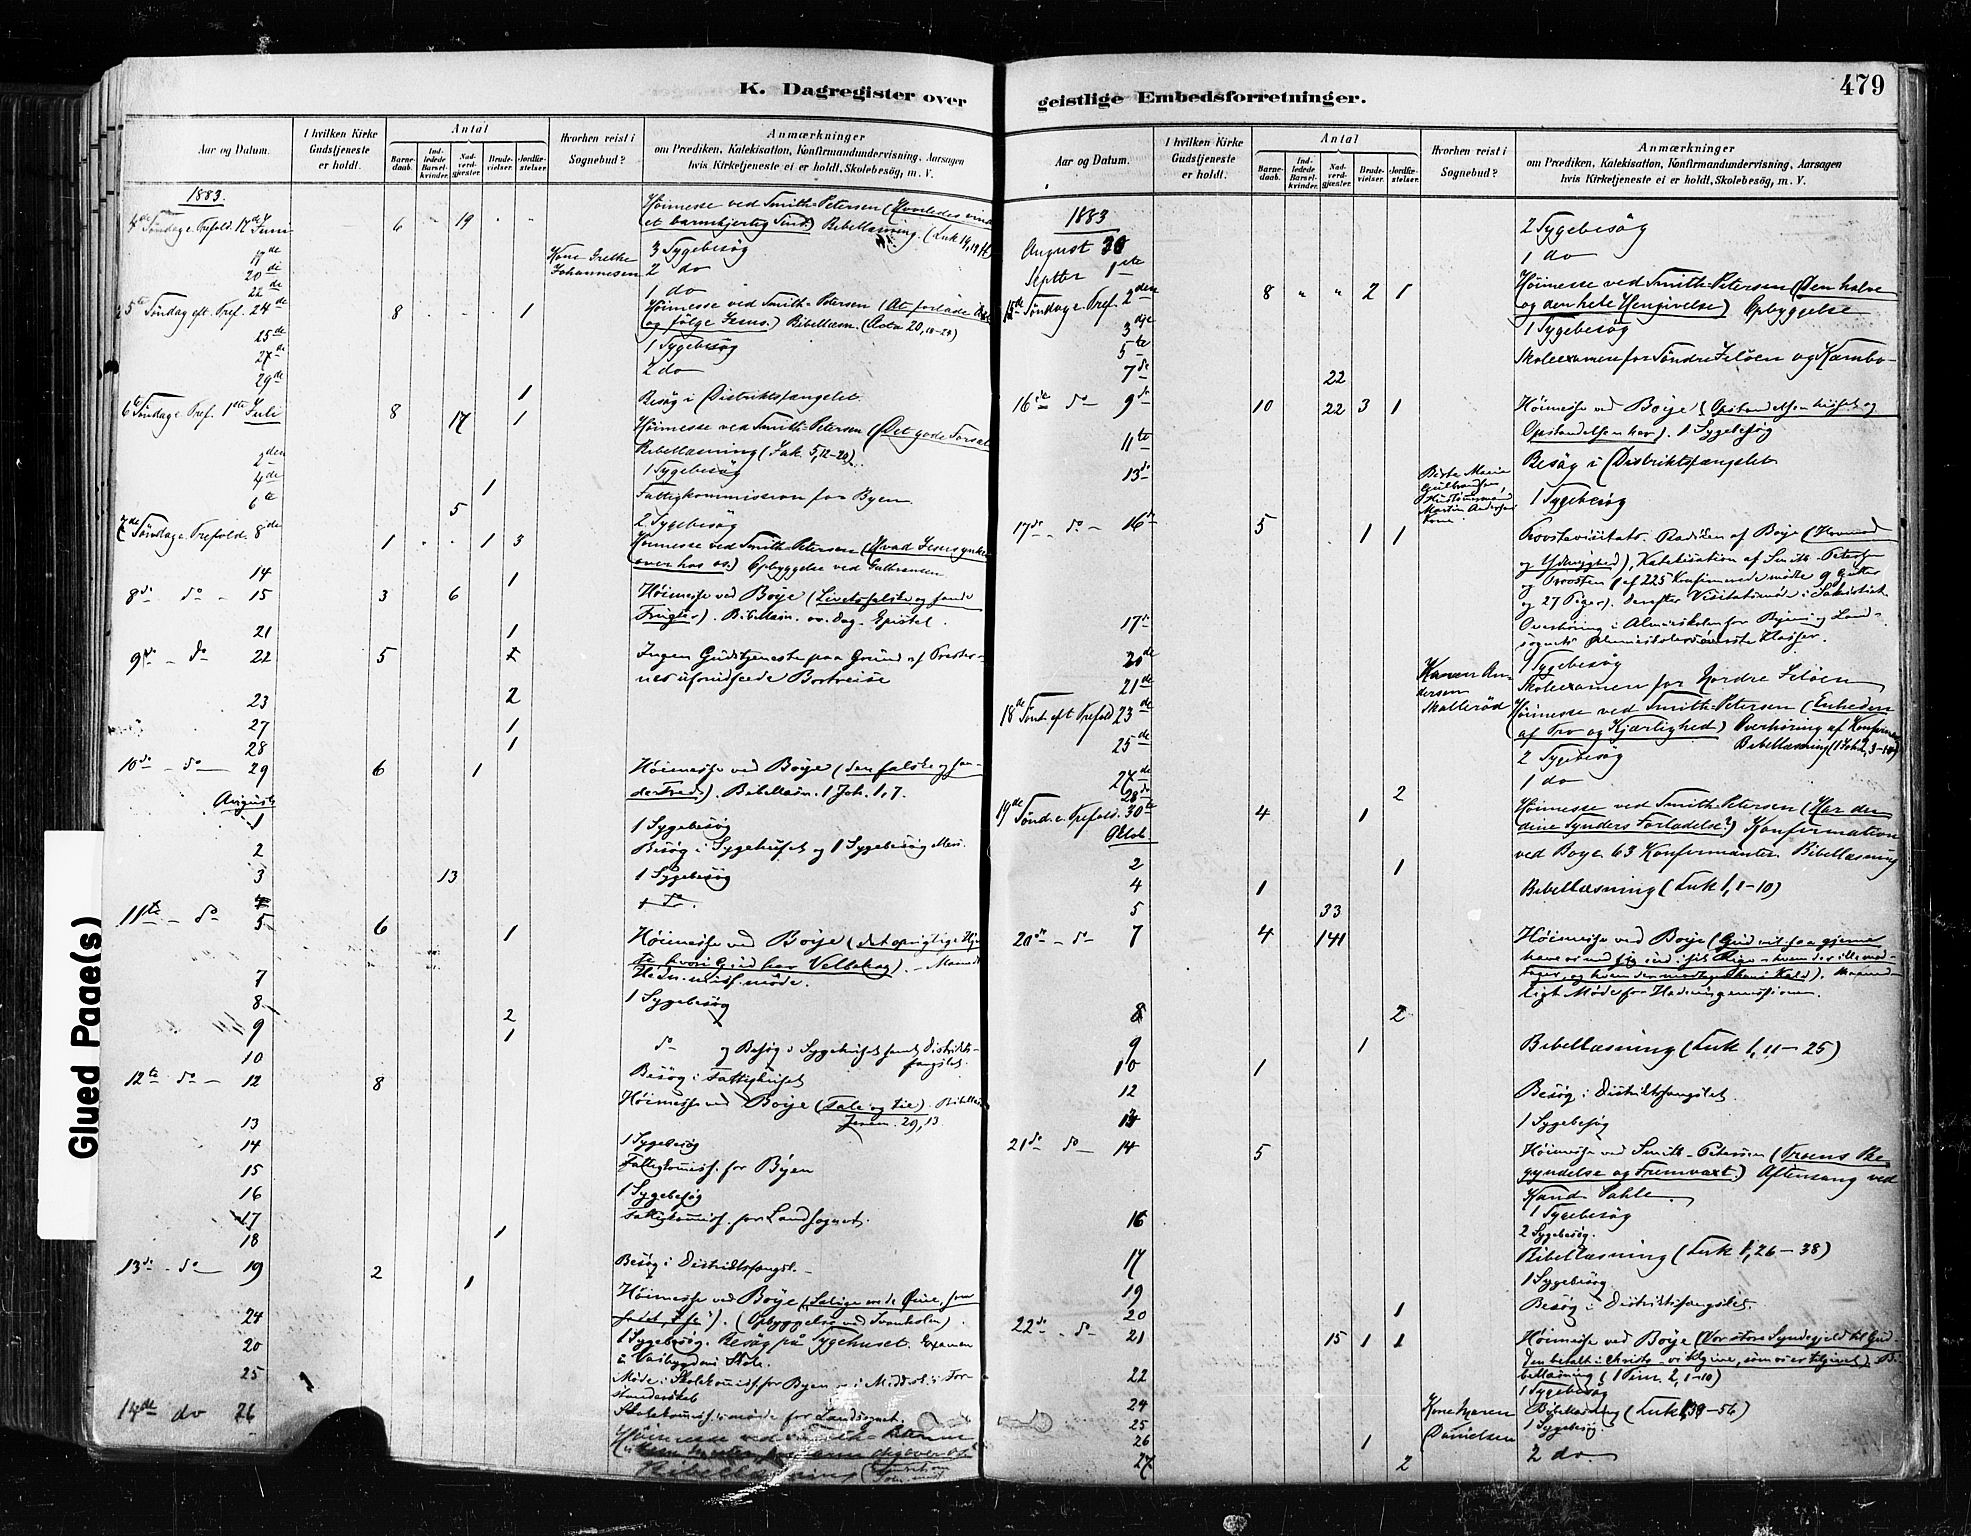 K. Dagregister over
Aar og Datum.
I hvilken Kirke Gudstjeneste er holdt.
Antal
Barnedaab.
Indledede Barselkvinder.
Nadverdgjæster.
Brudevielser.
Jordfæstelser.
Hvorhen reist i Sognebud?
Anmærkninger
om Prædiken, Katekisation, Konfirmandundervisning, Aarsagen
hvis Kirketjeneste ei er holdt, Skolebesøg, m. V.
1883.
4de Søndag e. Trefold. 17de Juni 6 19 Höimesse ved Smith-Petersen (Hvorledes vinde
et barmhjertig Sind) Bibellæsning. (Luk
17de 3 Sygebesög
20de Kone Grethe Johannesen 2 do
22de 1 do
5te Søndag eft. Tref. 24de 8 1 Höimesse ved Smith-Petersen (At forlade
og fölge Jesus.) Bibellæsn.
25de 1 Sygebesög
27de 2 do
29de 1 Besög i Distriktsfængslet
6te Søndag e. Tref. 1ste Juli 8 17 1 Höimesse ved Smith-Petersen (Det gode Forsæt
Bibellæsning (Jak. 5, 12-20)
2den 1 Sygebesög
4de 1 Fattigkommission for Byen
6te 5 2 Sygebesög
7de Søndag e. Trefold. 8de 1 1 3 Höimesse ved Smith-Petersen (Hvad Jesus ynkes
over hos os.) Opbyggelse ved Gulbransen
14 1
8de do 15 3 6 Höimesse ved Boije (Livets falske og sande
Frugter). Bibellæsn. ov. Dag. Epistel.
21 1
9de do 22 5 Ingen Gudstjeneste paa Grund af Præster-
nes uforudseede Bortreise
23 2
27 1
28 1
10de do 29 6 1 Höimesse ved Boije (den falske og san-
de Fred). Bibellæsn. 1 Joh. 1, 7.
August
1 1 Sygebesög
2 Besög i Sygehuset og 1 Sygebesög
3 13 1 Sygebesög
4
11te do 5 6 1 Höimesse ved Boije (det oprigtige Hjer
te, hvori Gud har Velbehag).
Hedn. miss. möde.
7 1 Sygebesög
8 2
9 1 do og Besög i Sygehuset samt Distrikts-
fængslet.
10 Besög i Fattighuset
12te do 12 8 Höimesse ved Boije (Tale og tie). Bibellæsn
Jerem. 29, 13.
13 1 Sygebesög
14 Fattigkomiss. for Byen
15 1 Sygebesög
16 Fattigkomiss. for Landsognet.
17
18 1 Besög i Distriktsfængsl.
13de do 19 2 1 Höimesse ved Boije (Salige ere de Öine, som
se det, I se"). (Opbyggelse ved Svenholen).
24 1 Sygebesög. Besög på Sygehuset. Examen
20
25 Möde i Skolekomiss. for Byen
Skolekomiss. möde for Landsognet.
14de do 26 Höimesse ved
Bibellæsning
geistlige Embedsforretninger.
479
Aar og Datum.
I hvilken Kirke Gudstjeneste er holdt.
Antal
Barnedaab.
Indledede Barselkvinder.
Nadverdgjæster.
Brudevielser.
Jordfæstelser.
Hvorhen reist i Sognebud?
Anmærkninger
om Prædiken, Katekisation, Konfirmandundervisning, Aarsagen
hvis Kirketjeneste ei er holdt, Skolebesøg, m. V.
1883
August 30 2 Sygebesög
Septter 1ste 1 do
15de Søndag e. Tref. 2den 8 " " 2 1 Höimesse ved Smith-Petersen (Den halve
og den hele Hengivelse) Opbyggelse
3dje 1 Sygebesög
5te Skoleexamen for Söndre Jelöen og Kambo-
7de 22
16de do 9de 10 22 3 1 Höimesse ved Boije (Opstandelsen
Opstandelsen her). 1 Sygebesög
11te Besög i Distriktsfængslet
13de Berte Marie Gulbransen, Husmand Martin Andersens Kone. 1 Sygebesög
17de do 16de 5 1 1 Provstevisitats. Prædiken af Boije
og Ydmyghed), Katekisation af Smith-Petersen
og Provsten (af 225 Konfirmerede mödte 9 Gutter
og 27 Piger). derefter Visitatsmöde i Sakristiet
17de Overhöring i Almueskolen for Byen og Land-
sognets Almueskolers överste Klasser.
20de 1 Sygebesög
21de Karen Andersen Skallerød Skoleexamen for Nordre Jelöen
18de Sønd. eft Trefold 23de Höimesse ved Smith-Petersen (Enheden
af Tro og Kjærlighed) Overhöring af Konfirm
25de Bibellæsning (1 Joh 2, 3-14)
2 Sygebesög
27de 1 do
28de 2
19de Sønd. e. Trefold. 30te 4 1 Höimesse ved Smith-Petersen (Har du
dine Synders Forladelse?) Konfirmation
Oktob.
ved Boye 63 Konfirmanter Bibellæsning
2 1
4 1 Bibellæsning (Luk 1, 1-10)
5 33
20de do 7 4 141 Höimesse ved Boije (Gud vil saa gjerne
have os ind i sit Rige - hvem der ille mod-
tager, og hvem der modtager hans Kald). Maaned-
ligt Möde for Hedningemissionen.
8 2
9 1 Bibellæsning (Luk 1, 11-25)
10 1
12 Besög i Distriktsfængslet.
13 1 Sygebesög
21de do 14 5 Höimesse ved Smith-Petersen (Troens Be-
gyndelse og Fremvæxt.) Aftensang ved
Kand. Pahle.
1 Sygebesög
16 2 Sygebesög.
Bibellæsning (Luk 1, 26-38)
17 1 Sygebesög
19 Besög i Distriktsfængslet.
20 1
22de do 21 15 1 1 Höimesse ved Boije (Vor store Syndegjeld til Gud
den betalt i Christo - vi tilgive, som vi er tilgivet). Bi-
bellæsning (1 Tim. 2, 1-10)
22 1 Sygebesög
24 Kone Maren Danielsen Bibellæsning (Luk 1, 39-56)
25 1 Sygebesög.
26 1 2 do.
27 2
Glued Page(s)